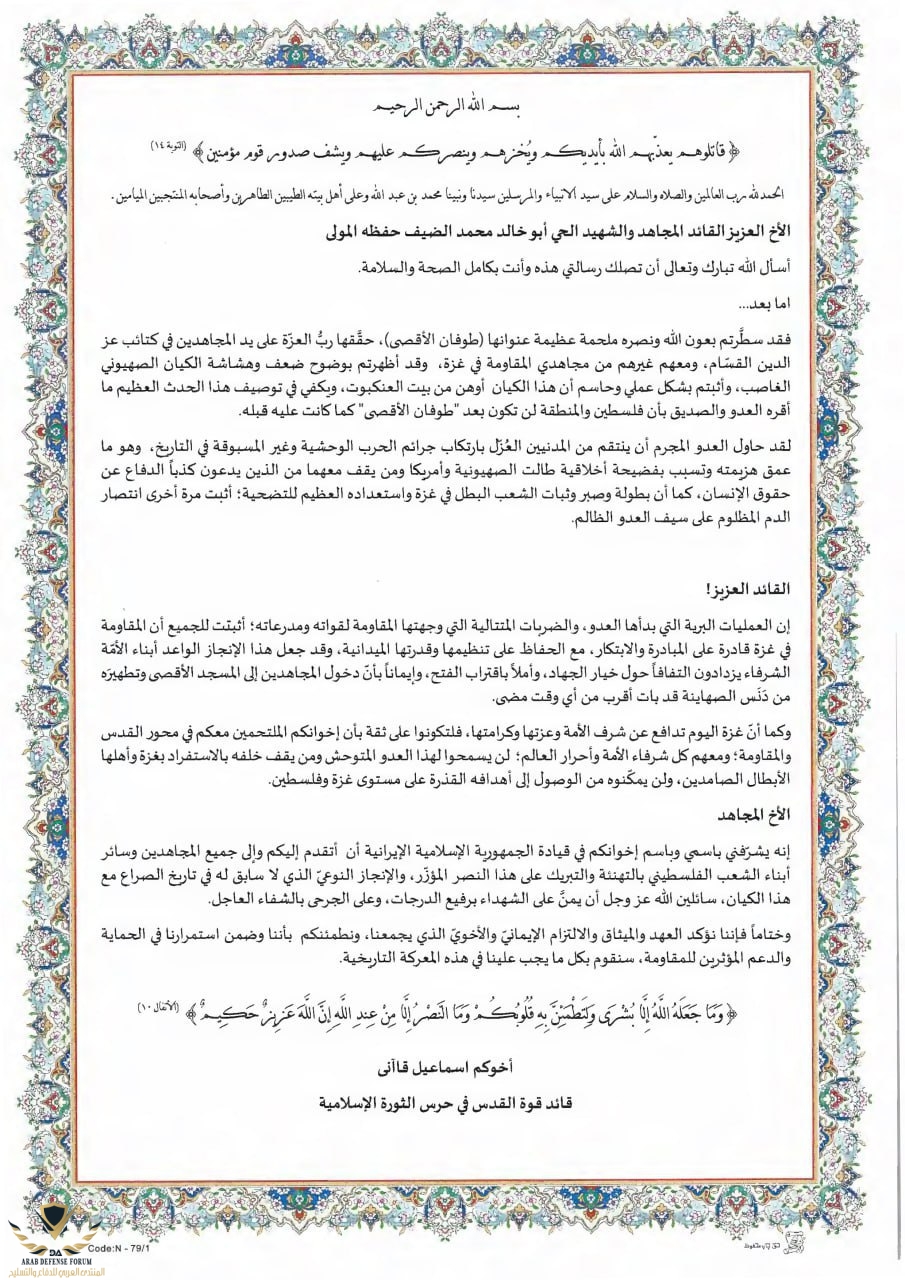 بسم الله الرحمن الرحيم
﴿ قاتلوهم يعذّبهم الله بأيديكم ويُخزهم وينصركم عليهم ويشف صدور قوم مؤمنين ﴾ (التوبة ١٤)
الحمدلله رب العالمين والصلاه والسلام على سيد الانبياء والمرسلين سيدنا ونبينا محمد بن عبد الله وعلى أهل بيته الطيبين الطاهرين وأصحابه المنتجبين الميامين .
الأخ العزيز القائد المجاهد والشهيد الحي أبو خالد محمد الضيف حفظه المولى
أسأل الله تبارك وتعالى أن تصلك رسالتي هذه وأنت بكامل الصحة والسلامة.
اما بعد...
فقد سطَّرتم بعون الله ونصره ملحمة عظيمة عنوانها (طوفان الأقصى)، حقَّقها ربُّ العزّة على يد المجاهدين في كتائب عز
الدين القسّام، ومعهم غيرهم من مجاهدي المقاومة في غزة، وقد أظهرتم بوضوح ضعف وهشاشة الكيان الصهيوني
الغاصب، وأثبتم بشكل عملي وحاسم أن هذا الكيان أوهن من بيت العنكبوت، ويكفي في توصيف هذا الحدث العظيم ما
أقره العدو والصديق بأن فلسطين والمنطقة لن تكون بعد "طوفان الأقصى" كما كانت عليه قبله.
لقد حاول العدو المجرم أن ينتقم من المدنيين العُزّل بارتكاب جرائم الحرب الوحشية وغير المسبوقة في التاريخ، وهو ما
عمق هزيمته وتسبب بفضيحة أخلاقية طالت الصهيونية وأمريكا ومن يقف معهما من الذين يدعون كذباً الدفاع عن
حقوق الإنسان، كما أن بطولة وصبر وثبات الشعب البطل في غزة واستعداده العظيم للتضحية؛ أثبت مرة أخرى انتصار
الدم المظلوم على سيف العدو الظالم.
القائد العزيز!
إن العمليات البرية التي بدأها العدو، والضربات المتتالية التي وجهتها المقاومة لقواته ومدرعاته؛ أثبتت للجميع أن المقاومة
في غزة قادرة على المبادرة والابتكار، مع الحفاظ على تنظيمها وقدرتها الميدانية، وقد جعل هذا الإنجاز الواعد أبناء الأمّة
الشرفاء يزدادون التفافاً حول خيار الجهاد، وأملاً باقتراب الفتح، وإيماناً بأنّ دخول المجاهدين إلى المسجد الأقصى وتطهيرَه
من دَنَس الصهاينة قد بات أقرب من أي وقت مضى.
وكما أنّ غزة اليوم تدافع عن شرف الأمة وعزتها وكرامتها، فلتكونوا على ثقة بأن إخوانكم الملتحمين معكم في محور القدس
والمقاومة؛ ومعهم كل شرفاء الأمة وأحرار العالم؛ لن يسمحوا لهذا العدو المتوحش ومن يقف خلفه بالاستفراد بغزة وأهلها
الأبطال الصامدين، ولن يمكّنوه من الوصول إلى أهدافه القذرة على مستوى غزة وفلسطين.
الأخ المجاهد
إنه يشرّفني باسمي وباسم إخوانكم في قيادة الجمهورية الإسلامية الإيرانية أن أتقدم إليكم وإلى جميع المجاهدين وسائر
أبناء الشعب الفلسطيني بالتهنئة والتبريك على هذا النصر المؤزّر، والإنجاز النوعيّ الذي لا سابق له في تاريخ الصراع مع
هذا الكيان، سائلين الله عز وجل أن يمنَّ على الشهداء برفيع الدرجات، وعلى الجرحى بالشفاء العاجل.
وختاماً فإننا نؤكد العهد والميثاق والالتزام الإيمانيّ والأخويّ الذي يجمعنا، ونطمئنكم بأننا وضمن استمرارنا في الحماية
والدعم المؤثرين للمقاومة، سنقوم بكل ما يجب علينا في هذه المعركة التاريخية.
﴿ وَمَا جَعَلَهُ اللَّهُ إِلَّا بُشْرَى وَلِتَطْمَئِنَّ بِهِ قُلُوبُكُمْ وَمَا النَّصْرُ إِلَّا مِنْ عِندِ اللَّهِ إِنَّ اللَّهَ عَزِيزٌ حَكِيمٌ ﴾ (الأنفال ١٠)
أخوكم اسماعيل قاآنى
قائد قوة القدس في حرس الثورة الإسلامية
Code:N - 79/1
DA
ARAB DEFENSE FORUM
المنتدى العربي للدفاع والتسليح